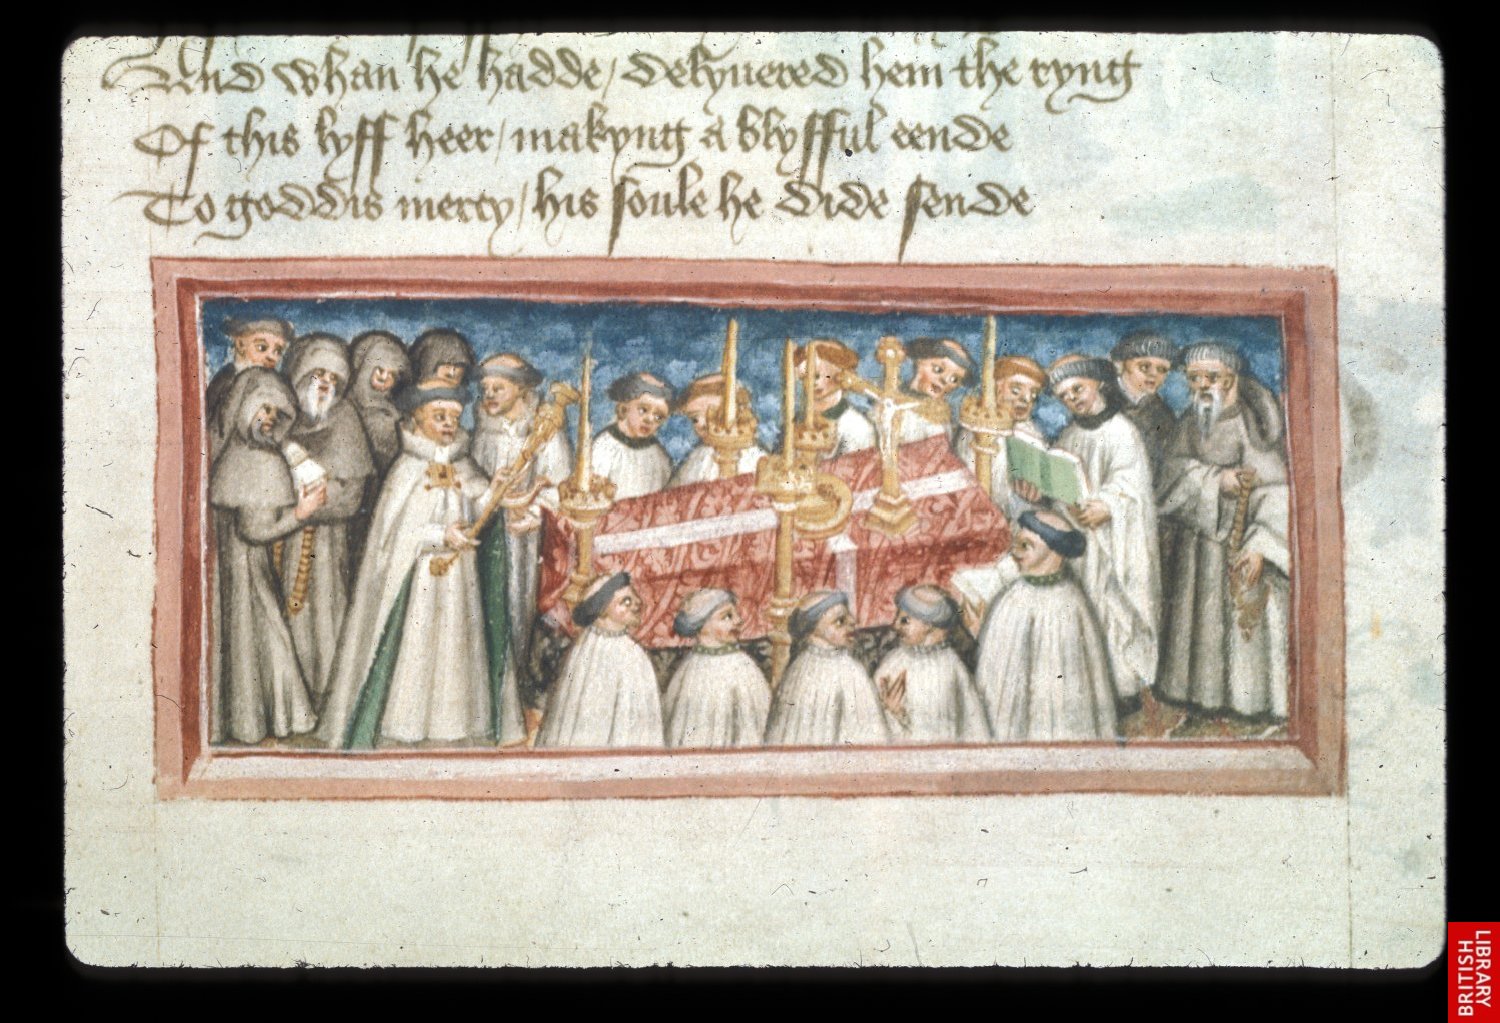 And whan he hadde / delyuered hem the ryng
Of this lyff heer / makyng a blyssful eende
To goddis mercy / his soule he dide sende
LIBRARY
BRITISH